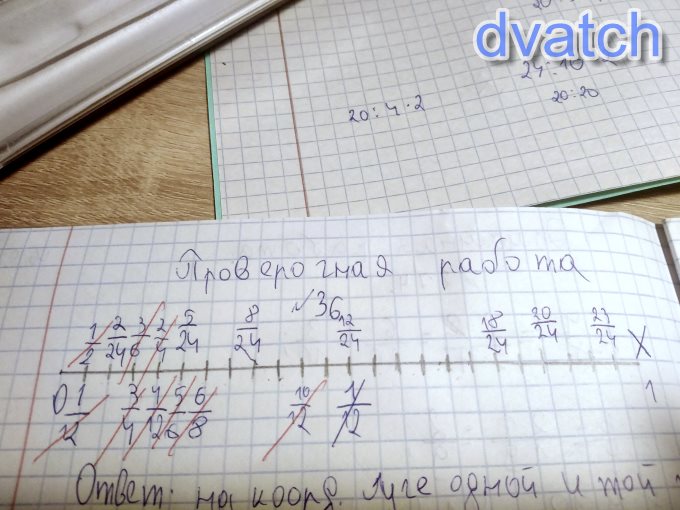 dvatch
24:10
20:4·2
20:20
Проверочная работа
√36
1/2 2/24 3/6 2/4 5/24 8/24 12/24 18/24 20/24 23/24 X
0 1/12 3/4 4/12 5/6 6/8 10/12 1/12 1
Ответ: на коорд. луче одной и той